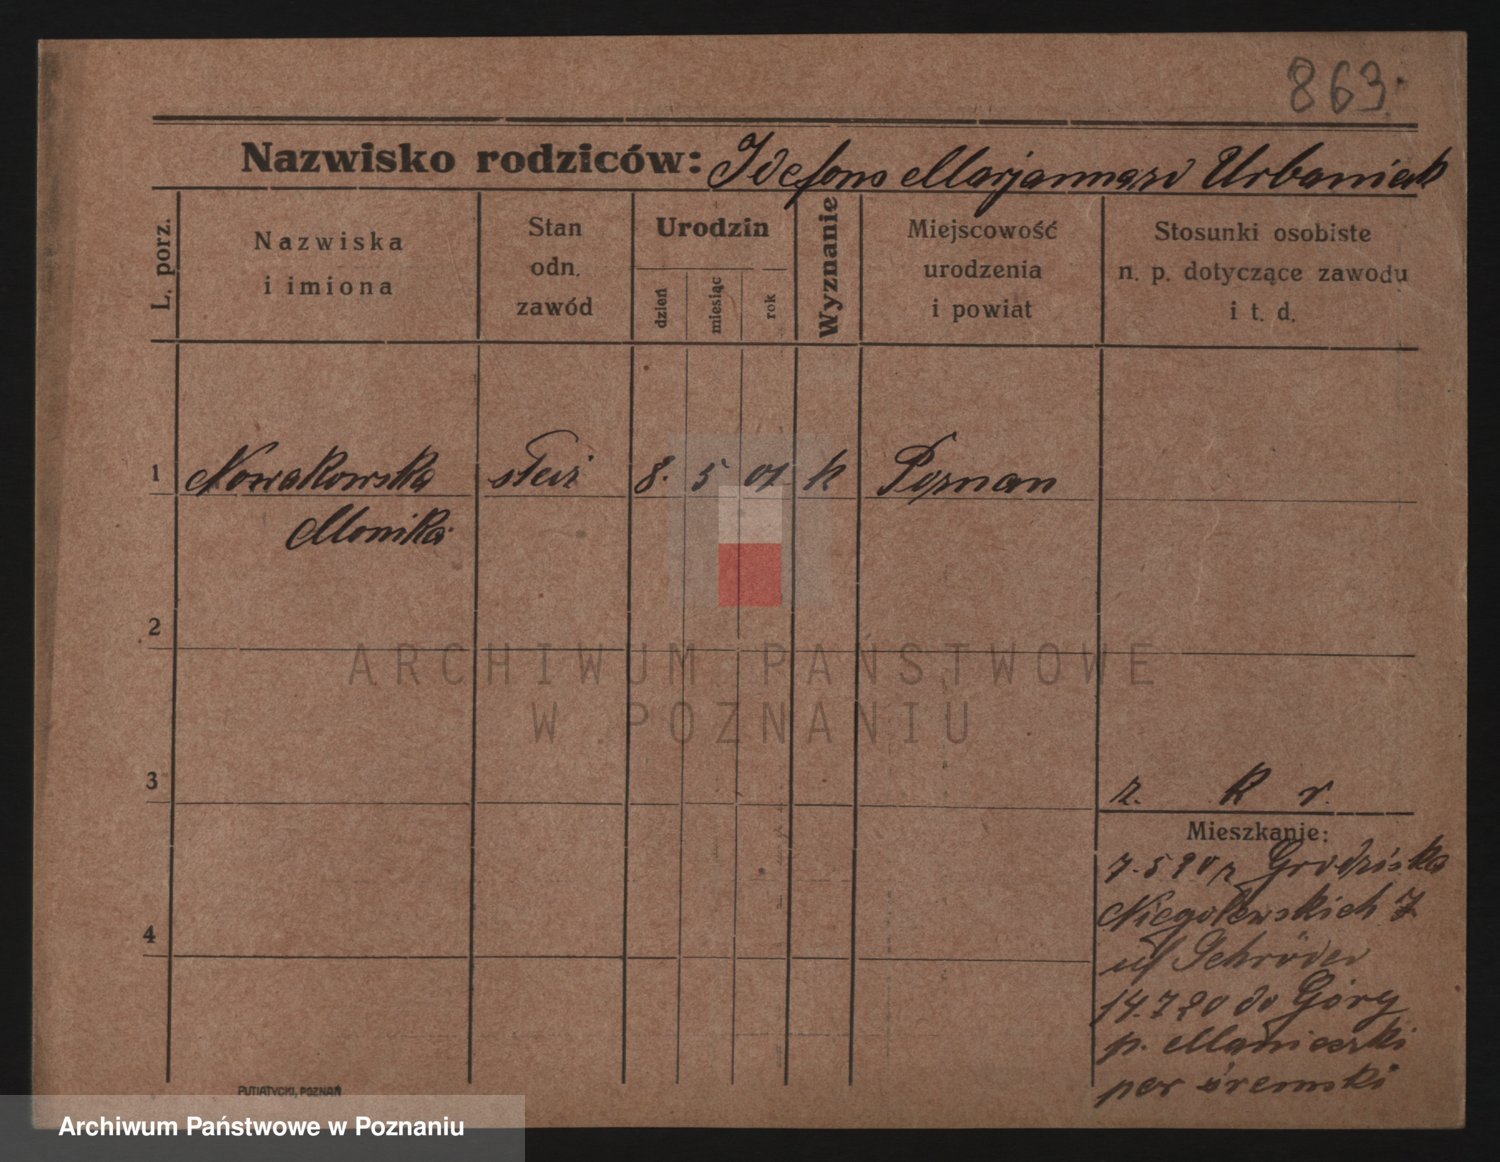 863.
Nazwisko rodziców: Idefons Marjanna zd Urbaniak
L. porz.
Nazwiska
i imiona
Stan
odn.
zawód
Urodzin
dzień
miesiąc
rok
Wyznanie
Miejscowość
urodzenia
i powiat
Stosunki osobiste
n. p. dotyczące zawodu
i t. d.
1 Nowakowska służ 8. 5 01 k Poznan
Monika
2
ARCHIWUM PAŃSTWOWE
W POZNANIU
3
z. k r.
Mieszkanie:
7.5 20 z Grodziska
Niegolewskich 7
u/ Schröder
14.7 20 do Góry
p. Manieczki
pow śremski
4
PUTIATYCKI, POZNAŃ
Archiwum Państwowe w Poznaniu